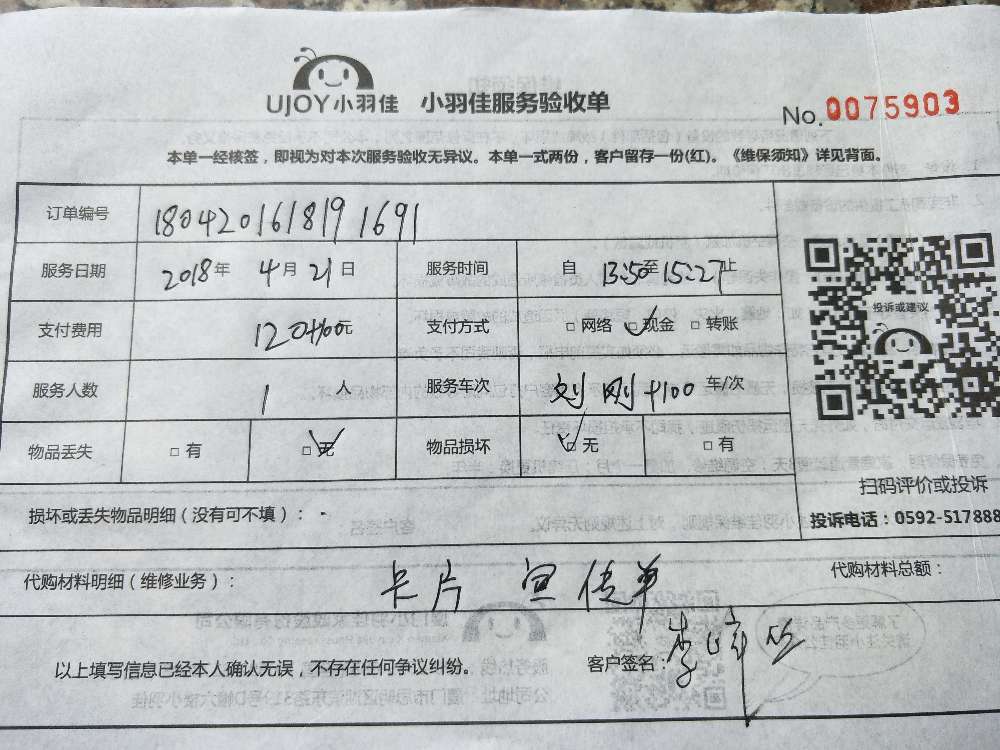 UJOY小羽佳 小羽佳服务验收单
No.0075903
本单一经核签，即视为对本次服务验收无异议。本单一式两份，客户留存一份(红)。《维保须知》详见背面。
订单编号 180420161819 1691
服务日期 2018年 4月 21日 服务时间 自 13:50至 15:27止
支付费用 120+100元 支付方式 □ 网络 ☑ 现金 □ 转账
服务人数 1 人 服务车次 刘刚+100 车/次
物品丢失 □ 有 ☑ 无 物品损坏 ☑ 无 □ 有
投诉或建议
扫码评价或投诉
损坏或丢失物品明细（没有可不填）：
投诉电话：0592-517888
代购材料明细（维修业务）： 卡片 宣传单 代购材料总额：
以上填写信息已经本人确认无误，不存在任何争议纠纷。 客户签名：